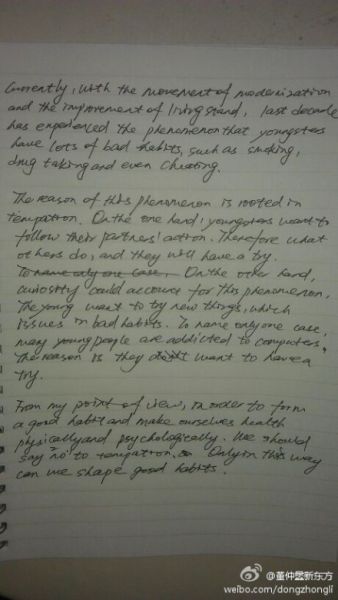 Currently, with the movement of modernization
and the improvement of living stand, last decade
has experienced the phenomenon that youngsters
have lots of bad habits, such as smoking,
drug taking and even cheating.
The reason of this phenomenon is rooted in
tempatron. On the one hand, youngsters want to
follow their partners' action. Therefore what
others do, and they will have a try.
To name only one case, On the other hand,
curiostty could account for this phenomenon,
The young want to try new things, which
issues in bad habits. To name only one case,
many young people are addicted to computers,
The reason is they want to have a
try.
From my point of view, in order to form
a good habit and make ourselves health
physically and psychologically. We should
say "no" to tempatron. Only in this way
can we shape good habits.
@董仲蠡新东方
weibo.com/dongzhongli